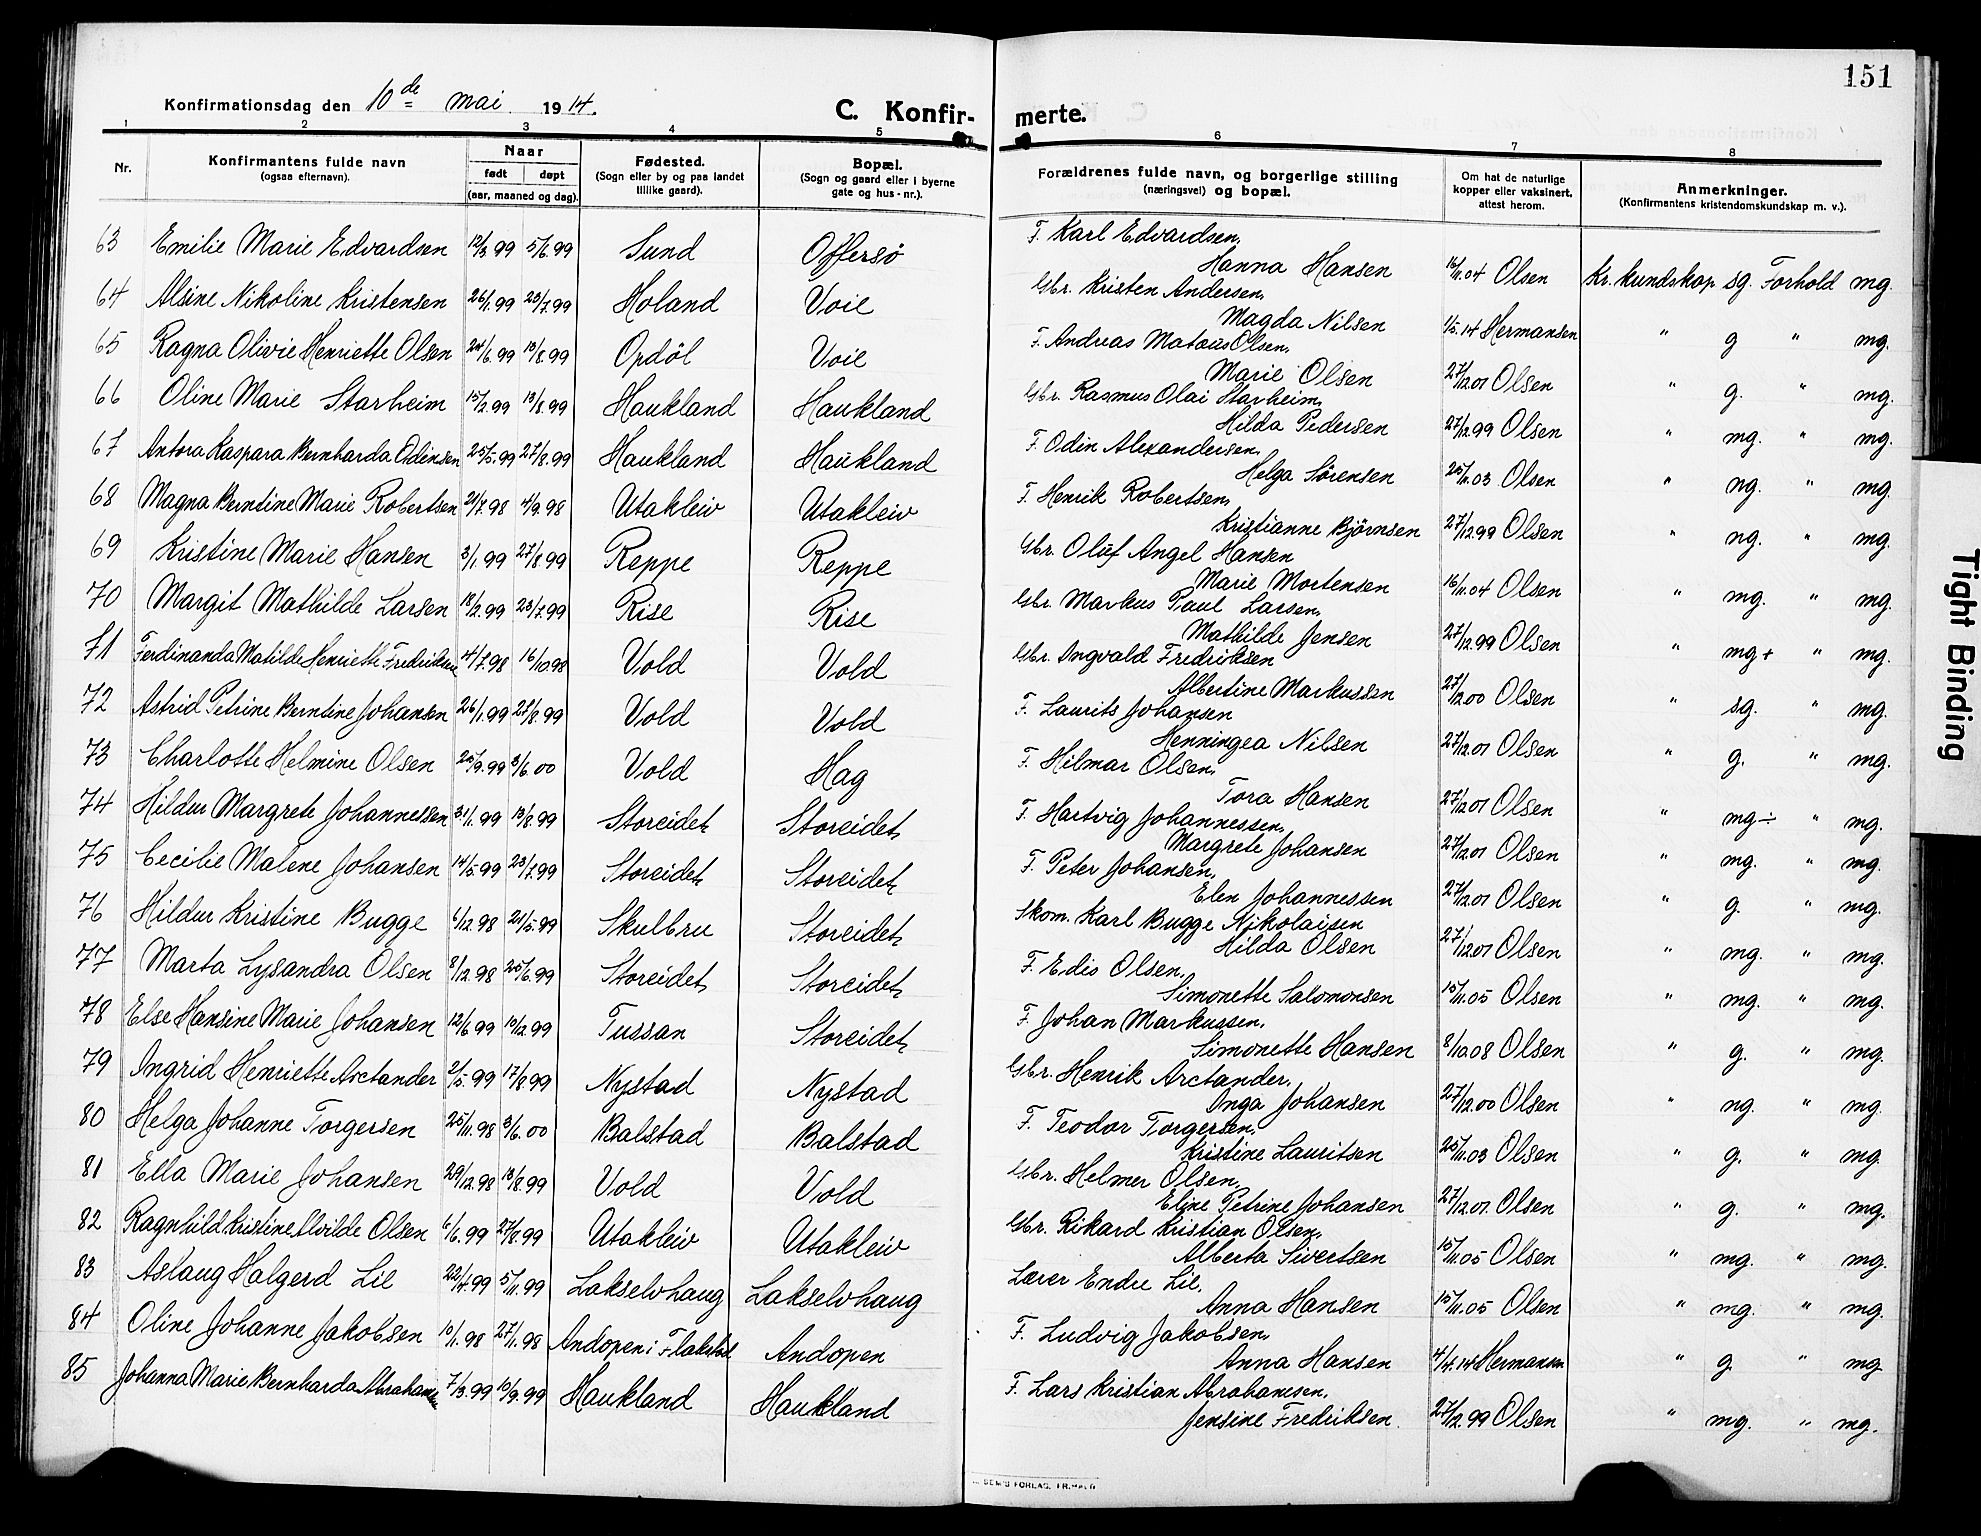 151
Konfirmationsdag den 10de mai 1914.
C. Konfir-
merte.
1 2 3 4 5 6 7 8
Nr.
Konfirmantens fulde navn
(ogsaa efternavn).
Naar
født døpt
(aar, maaned og dag).
Fødested.
(Sogn eller by og paa landet
tillike gaard).
Bopæl.
(Sogn og gaard eller i byerne
gate og hus-nr.).
Forældrenes fulde navn, og borgerlige stilling
(næringsvei) og bopæl.
Om hat de naturlige
kopper eller vaksinert,
attest herom.
Anmerkninger.
(Konfirmantens kristendomskundskap m. v.).
63 Emilie Marie Edvardsen 12/3.99 5/6.99 Sund Offersø
F. Karl Edvardsen,
Hanna Hansen 16/11.04 Olsen Kr. kundskap sg. Forhold mg.
64 Alsine Nikoline Kristensen 26/1.99 23/7.99 Holand Voie
Gbr. Kristen Andersen,
Magda Nilsen 1/5.14 Hermansen " g " mg.
65 Ragna Olivie Henriette Olsen 24/6.99 13/8.99 Opdøl Voie
F. Andreas Mataus Olsen,
Marie Olsen 27/12.01 Olsen " g. " mg.
66 Oline Marie Starheim 15/2.99 13/8.99 Haukland Haukland
Gbr. Rasmus Olai Starheim,
Hilda Pedersen 27/12.99 Olsen " mg. " mg.
67 Antora Kaspara Bernharda Odinsen 25/5.99 27/8.99 Haukland Haukland
F. Odin Alexandersen,
Helga Sørensen 25/11.03 Olsen " ng. " mg.
68 Magna Berntine Marie Robertsen 21/7.98 4/9.98 Utakleiv Utakleiv
F. Henrik Robertsen,
Kristianne Bjørnsen 27/12.99 Olsen " ng. " mg.
69 Kristine Marie Hansen 3/1.99 27/8.99 Reppe Reppe
Gbr. Oluf Angel Hansen
Marie Mortensen 16/11.04 Olsen " mg. " mg.
70 Margit Mathilde Larsen 18/2.99 23/7.99 Rise Rise
Gbr. Markus Paul Larsen,
Mathilde Jensen 27/12.99 Olsen " mg+ " mg.
71 Ferdinanda Matilde Henriette Fredriksen 14/7.98 16/10.98 Vold Vold
Gbr. Ingvald Fredriksen
Albertine Markussen 27/12.00 Olsen " sg. " mg.
72 Astrid Petrine Berntine Johansen 26/1.99 27/8.99 Vold Vold
F. Laurits Johansen
Henningea Nilsen 27/12.01 Olsen " g. " mg.
73 Charlotte Helmine Olsen 25/9.99 3/6.00 Vold Hag
F. Hilmar Olsen,
Tora Hansen 27/12.01 Olsen " mg÷ " mg.
74 Hildur Margrete Johannessen 31/1.99 13/8.99 Storeidet Storeidet
F. Hartvig Johannessen,
Margrete Johansen 27/12.01 Olsen " mg. " mg.
75 Cecilie Malene Johansen 14/5.99 23/7.99 Storeidet Storeidet
F. Peter Johansen,
Elen Johannessen 27/12.01 Olsen " g. " mg.
76 Hildur Kristine Bugge 6/12.98 21/5.99 Skulbru Storeidet
Skom. Karl Bugge Nikolaisen
Hilda Olsen 27/12.01 Olsen " mg. " mg.
77 Marta Lysandra Olsen 8/12.98 25/6.99 Storeidet Storeidet
F. Edis Olsen,
Simonette Salomonsen 15/11.05 Olsen " mg. " mg.
78 Else Hansine Marie Johansen 12/6.99 10/12.99 Tussan Storeidet
F. Johan Markussen,
Simonette Hansen 8/10.08 Olsen " g. " mg.
79 Ingrid Henriette Arctander 2/5.99 17/8.99 Nystad Nystad
Gbr. Henrik Arctander,
Inga Johansen 27/12.00 Olsen " ng. " mg.
80 Helga Johanne Torgersen 25/11.98 3/6.00 Balstad Balstad
F. Teodor Torgersen,
Kristine Lauritsen 25/11.03 Olsen " g. " mg.
81 Ella Marie Johansen 29/12.98 13/8.99 Vold Vold
Gbr. Helmer Olsen,
Eline Petrine Johansen 27/12.01. Olsen " g. " mg.
82 Ragnhild Kristine Alvilde Olsen 6/1.99 27/8.99 Utakleiv Utakleiv
Gbr. Rikard Kristian Olsen,
Alberta Sivertsen 15/11.05 Olsen " mg. " mg.
83 Aslaug Halgerd Lie 22/4.99 5/11.99 Lakselvhaug Lakselvhaug
Lærer Endre Lie,
Anna Hansen 15/11.05 Olsen " mg. " mg.
84 Oline Johanne Jakobsen 10/1.98 27/1.98 Andopen i Flakstad Andopen
F. Ludvig Jakobsen,
Anna Hansen 4/4.14 Hermansen " g " mg
85 Johanna Marie Bernharda Abrahamsen 7/3.99 10/9.99 Haukland Haukland
F. Lars Kristian Abrahamsen,
Jensine Fredriksen 27/12.99 Olsen " mg. " mg.
SEM'S FORLAG, FR.HALD
Tight Binding